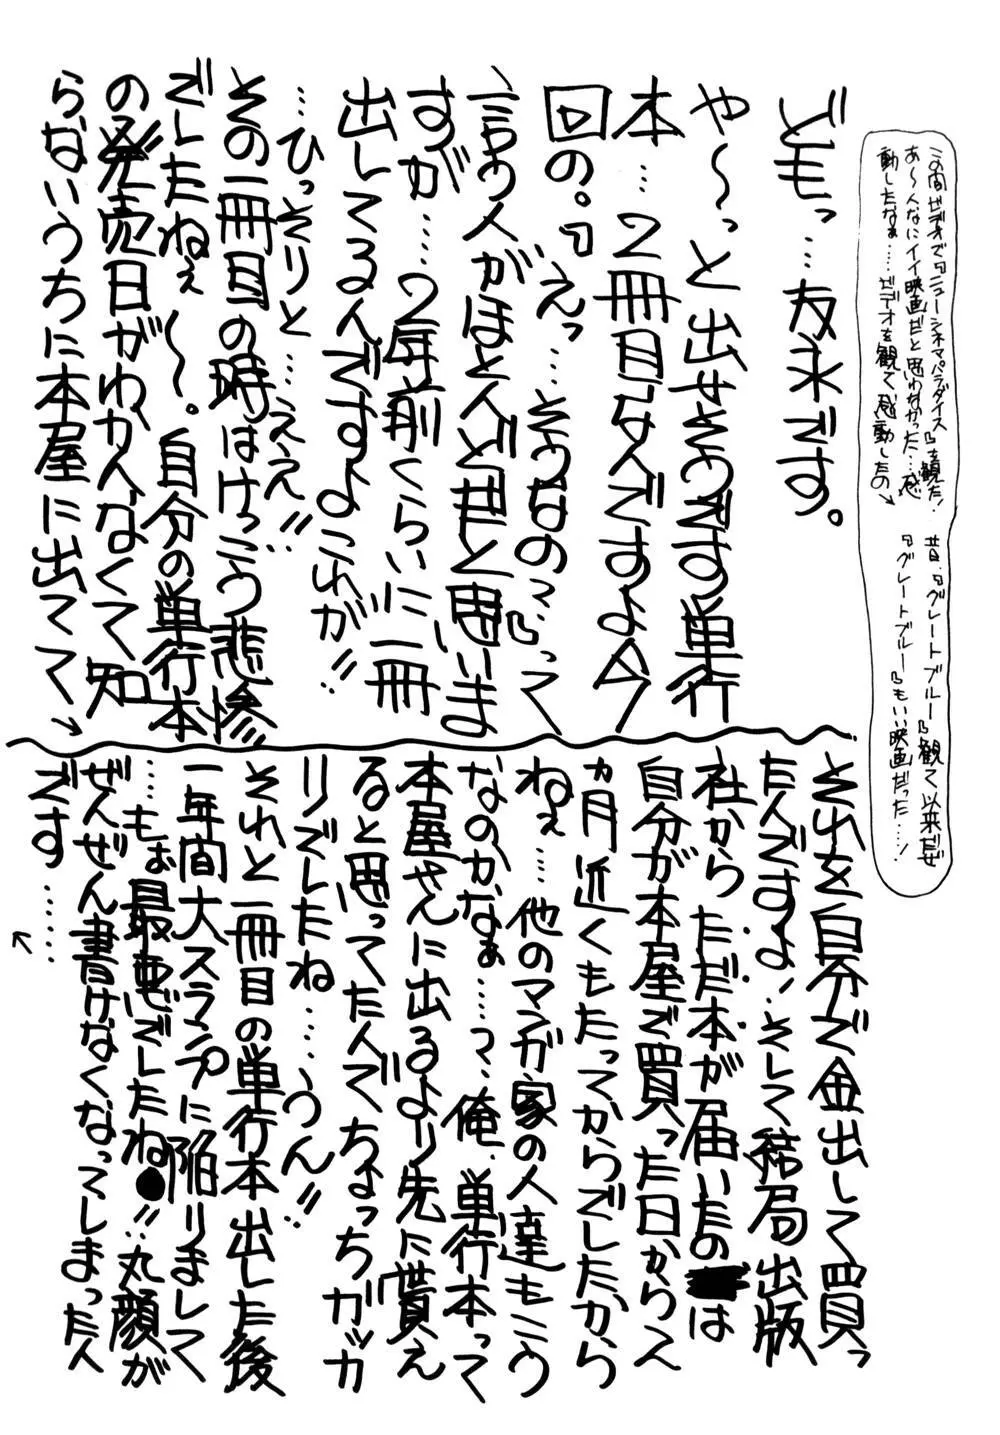 どもっ…友永です。
や〜っと出せそうです単行
本…２冊目なんですよ今
回の。『えっ……そうなの？』って
言う人がほとんどだと思いま
すが……２年前くらいに一冊
出してるんですよこれが!!
…ひっそりと……ええ!!
その一冊目の時はけっこう悲惨
でしたねぇ〜。自分の単行本
の発売日がわかんなくて知
らないうちに本屋に出てて→
それを自分で金出して買っ
たんですよ、そして結局出版
社からただ本が届いたのは
自分が本屋で買った日から一
ヵ月近くもたってからでしたから
ねぇ…他のマンガ家の人達もこう
なのかなぁ……？、俺、単行本って
本屋さんに出るより先に貰え
ると思ってたんでちょっちガッカ
リでしたね……うん!!
それと一冊目の単行本出した後
一年間大スランプに陥りまして
…もぉ最悪でしたね!!丸顔が
ぜんぜん書けなくなってしまったん
です……
↑
この間ビデオで『ニューシネマパラダイス』を観た!
あ〜んなにイイ映画だと思わなかった…感
動したなぁ……ビデオを観て感動したの→
昔、『グレートブルー』観て以来だぜ
『グレートブルー』もいい映画だった……!